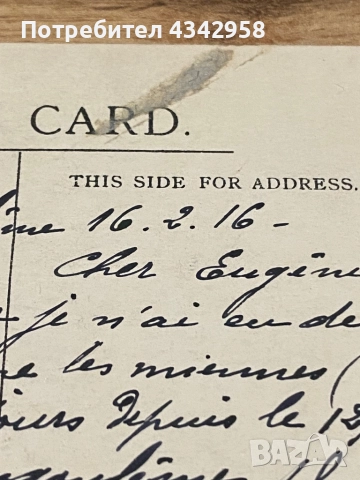 Потребител 4342958
CARD.
THIS SIDE FOR ADDRESS.
16.2.16 -
Cher Eugène
je n'ai eu de
les miennes (
depuis le 12
BAZAR